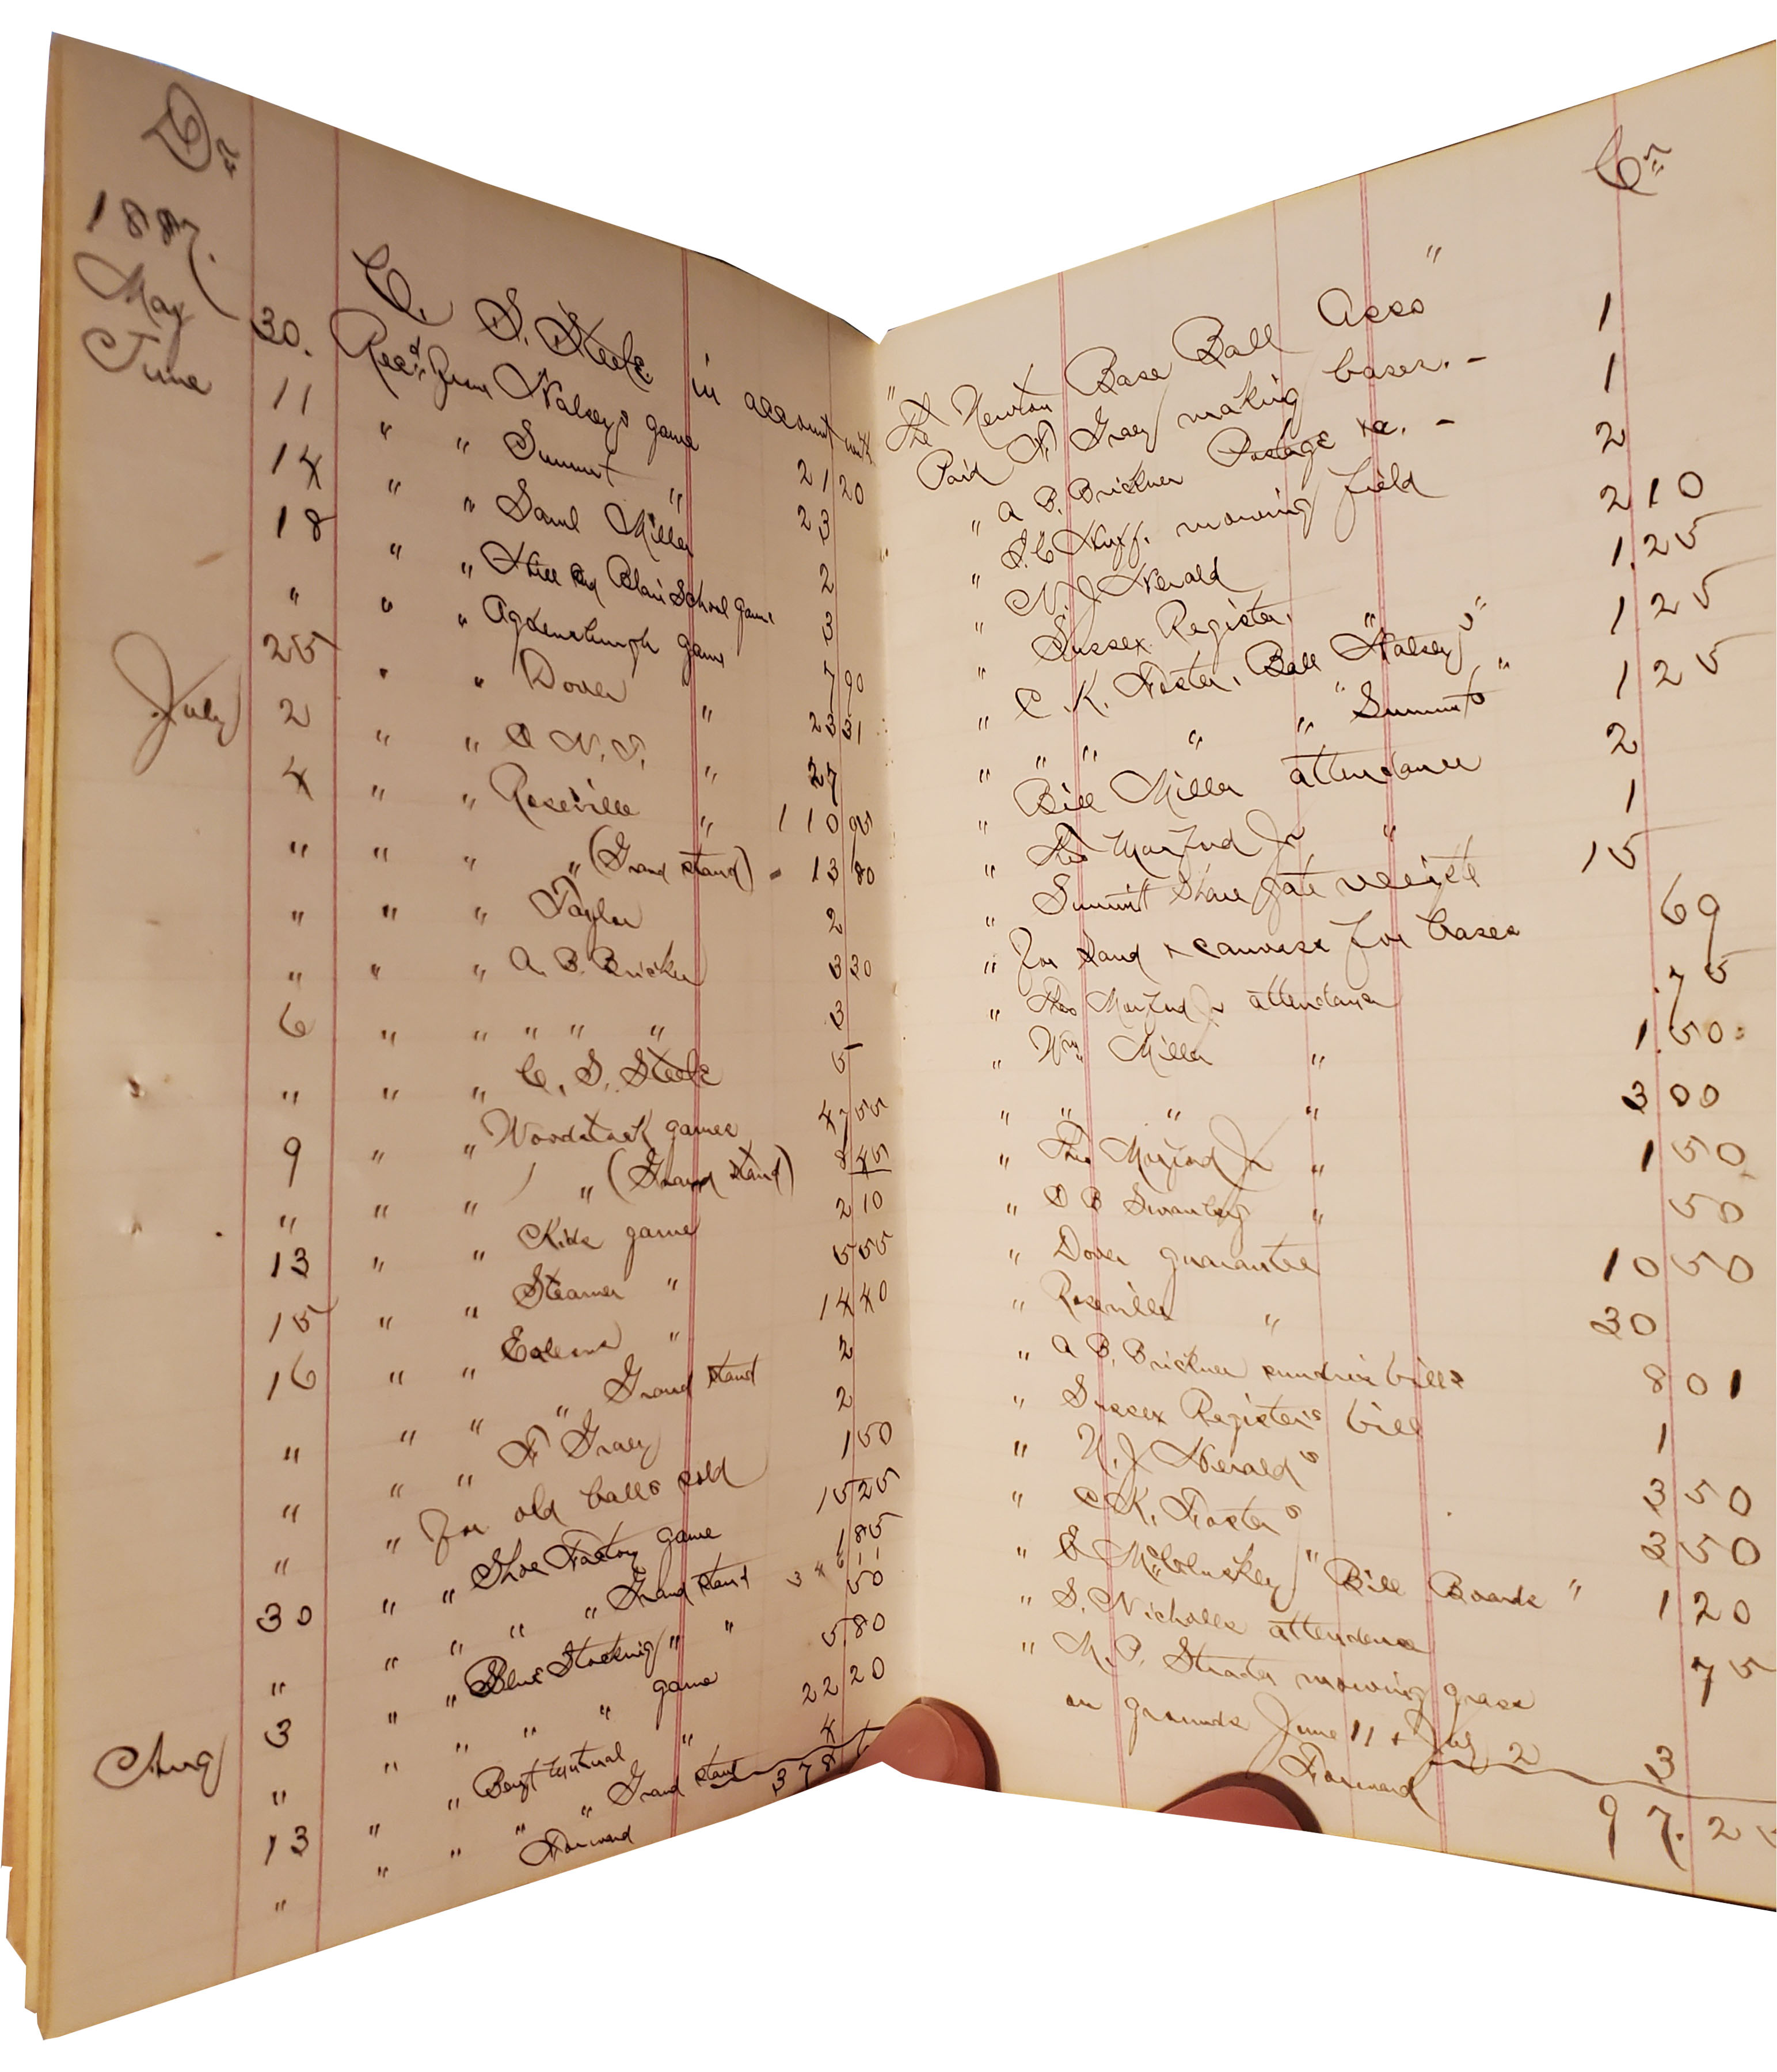 Dr
1887.
C. S. Steele in account with
May 30. Recd from Halseys game 21 20
June 11 " " Summit " 23
14 " " Saml Miller 2
18 " " Hill and Blair School game 3
" " " Ogdensburgh game 7 90
25 " " Dover " 23 31
July 2 " " O. N. T. " 27
4 " " Roseville " 110 95
" " " " (Grand stand) - 13 80
" " " Taylor 2
" " " A. B. Brickner 3 30
6 " " " " " 3
" " " C. S. Steele 5
9 " " Woodstock games 47 55
" " " " (Grand stand) 8 45
13 " " Kids game 2 10
15 " " Steamer " 5 55
16 " " " 14 40
" " " Grand stand 2
" " " H Gray 2
" " for old balls sold 1 50
30 " " Shoe Factory game 15 25
" " " " Grand stand 1 85
3 " " Blue Stocking " " 50
Aug " " " " game 5 80
13 " " " 22 20
" " " " Grand stand 4
Forward 378
Cr
" The Newton Base Ball Asso "
Paid H Gray making bases. - 1
" A B. Brickner Postage &c. - 1
" S. C Huff. mowing field 2
" N. J Herald 2 10
" Sussex Register. 1.25
" C. K. Foster. Ball "Halseys" 1 25
" " " " " "Summits" 1 25
" Bill Miller attendance 2
" Theo Morford Jr " 1
" Summit Share gate receipts 15
" for sand & canvass for bases 69
" Theo Morford Jr attendance .75
" Wm Miller " 1.50
" " " " 3 00
" Theo Morford Jr " 1 50
" " 50
" Dover guarantee 10 50
" Roseville " 30
" A B. Brickner sundries bills 8 01
" Sussex Register's bill 1
" N. J Herald's 3 50
" C K. Foster's 3 50
" E McCluskey "Bill Boards" 1 20
" S. Nicholls attendance 75
" M. P. Strader mowing grass
on grounds June 11 & July 2 3
Forward 97.2